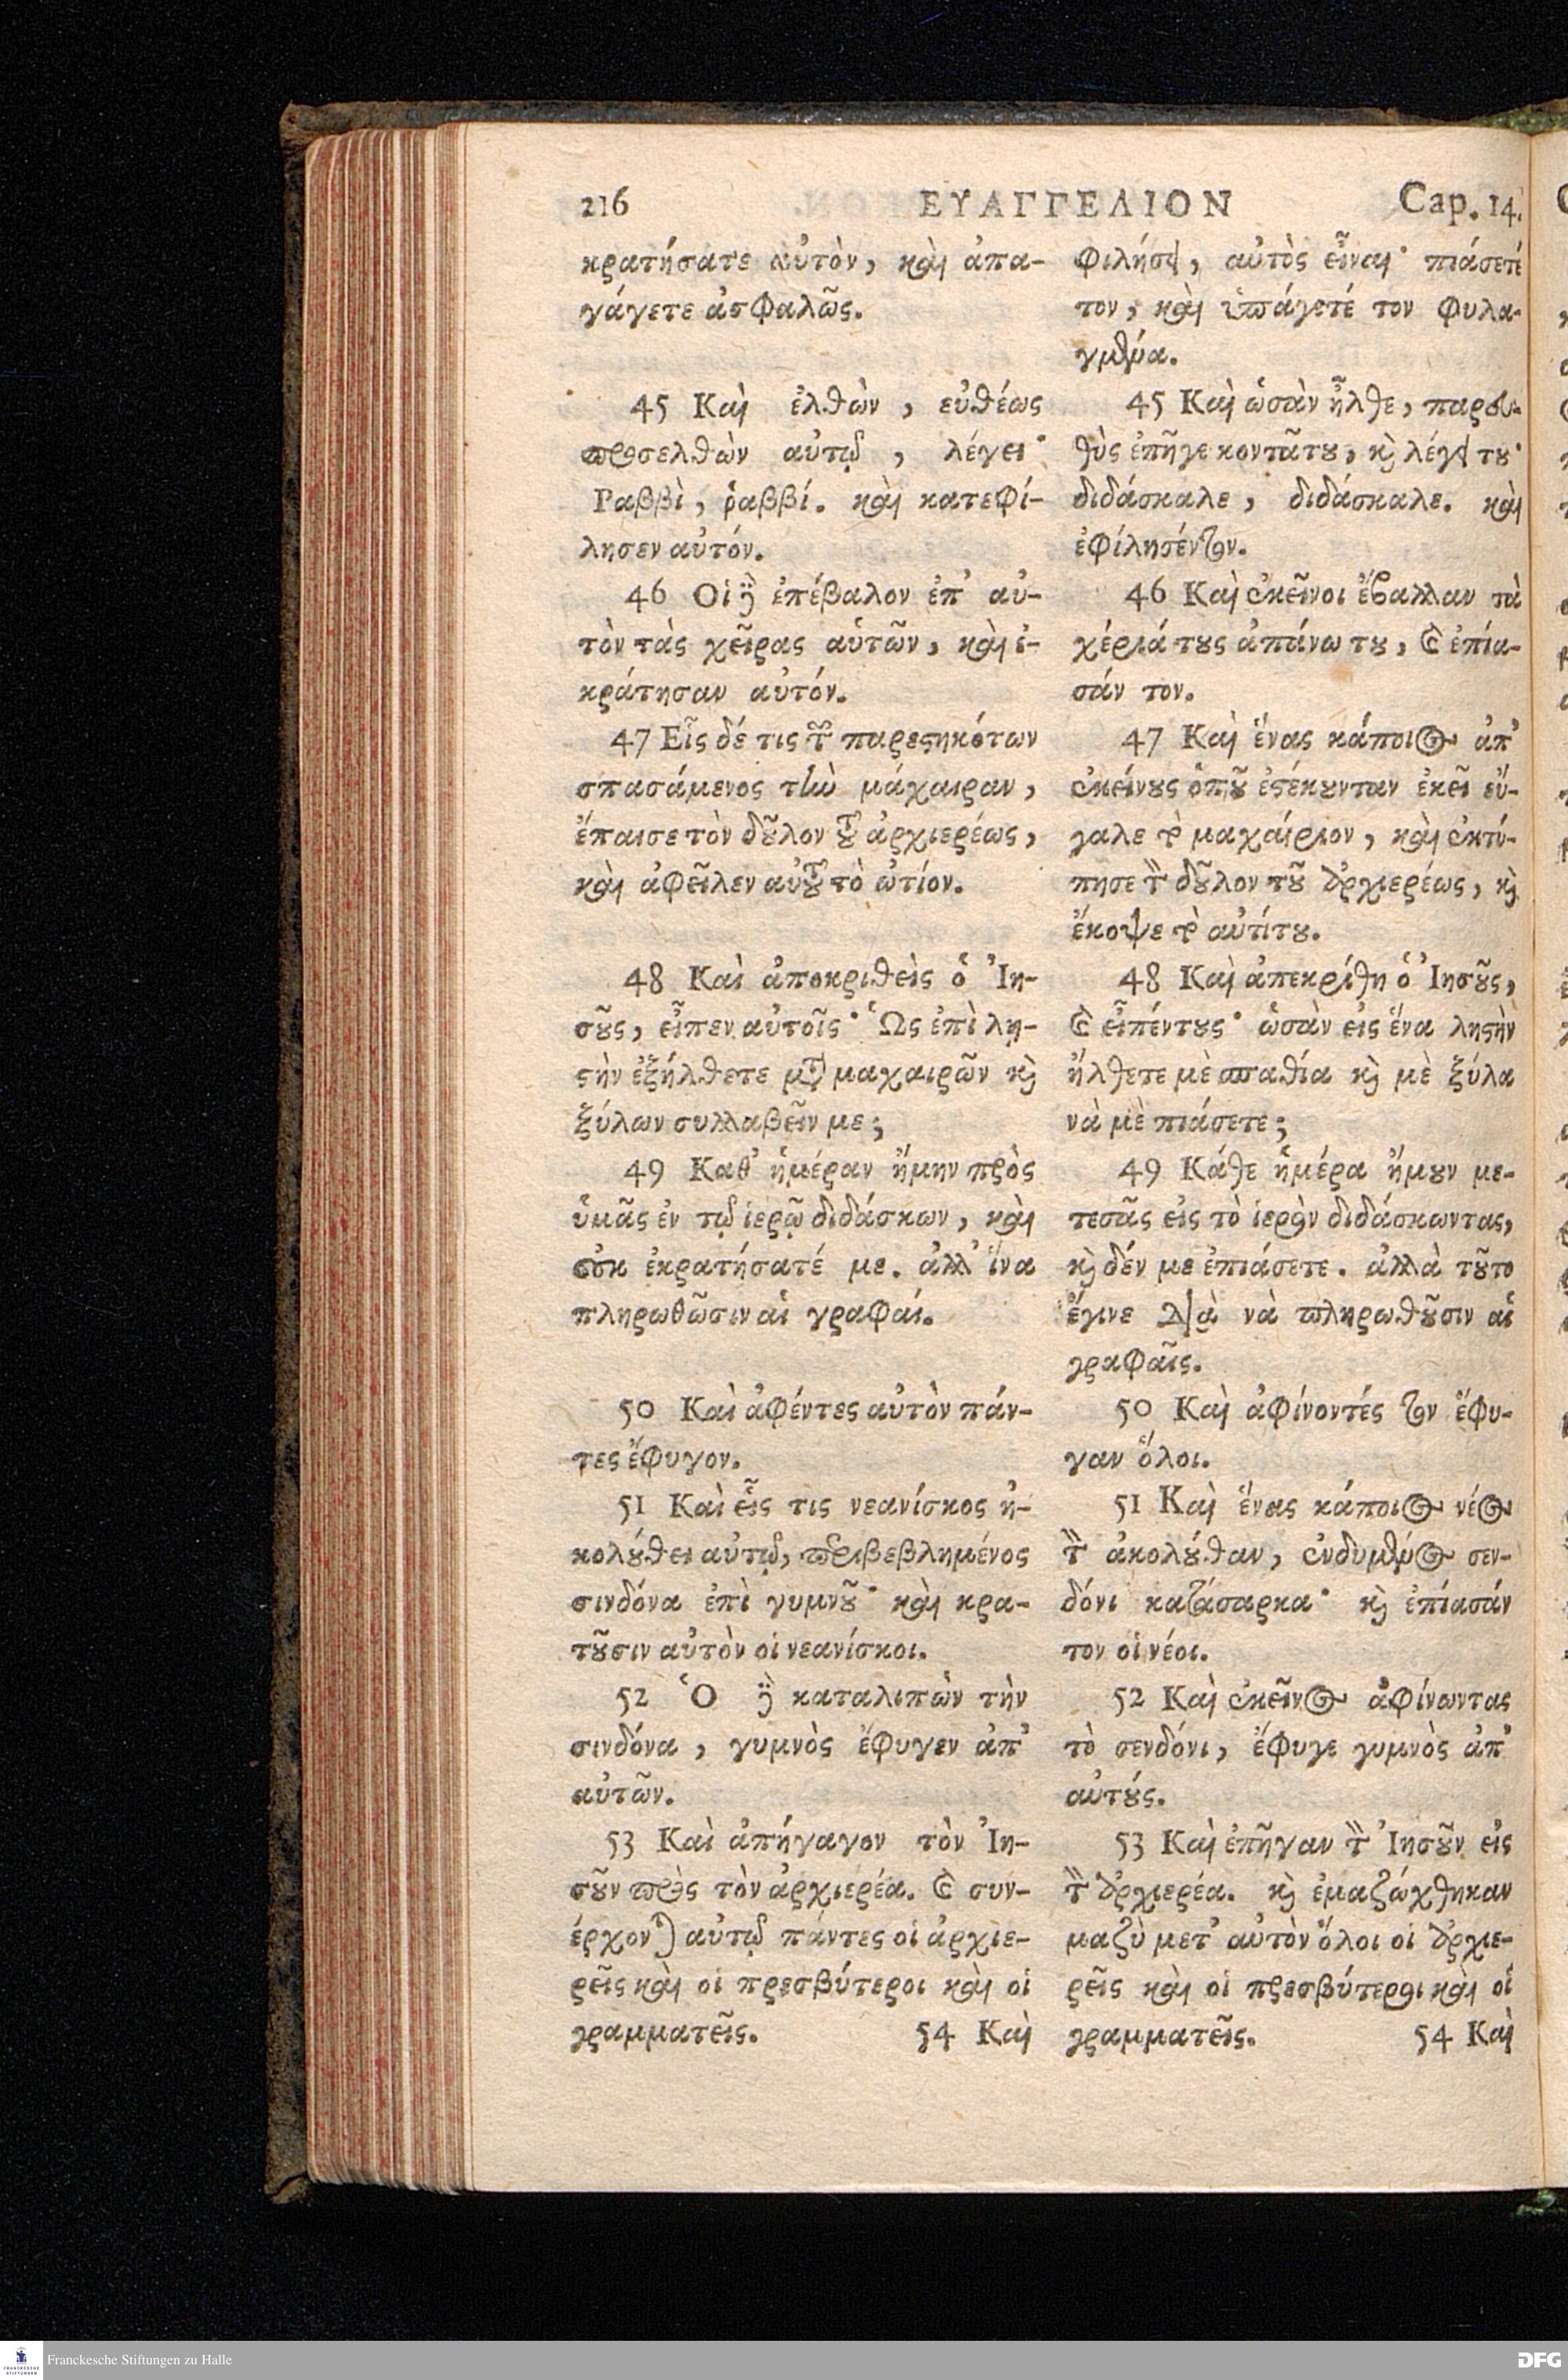 216 ΕΥΑΓΓΕΛΙΟΝ Cap. 14.
κρατήσατε αὐτὸν, καὶ ἀπα-
γάγετε ἀσφαλῶς.
45 Καὶ ἐλθὼν, εὐθέως
προσελθὼν αὐτῷ, λέγει·
Ραββὶ, ῥαββί. καὶ κατεφί-
λησεν αὐτόν.
46 Οἱ δὲ ἐπέβαλον ἐπ' αὐ-
τὸν τὰς χεῖρας αὑτῶν, καὶ ἐ-
κράτησαν αὐτόν.
47 Εἷς δέ τις τῶν παρεστηκότων
σπασάμενος τὴν μάχαιραν,
ἔπαισε τὸν δοῦλον τοῦ ἀρχιερέως,
καὶ ἀφεῖλεν αὐτοῦ τὸ ὠτίον.
48 Καὶ ἀποκριθεὶς ὁ Ἰη-
σοῦς, εἶπεν αὐτοῖς· Ὡς ἐπὶ λη-
στὴν ἐξήλθετε μετὰ μαχαιρῶν καὶ
ξύλων συλλαβεῖν με;
49 Καθ' ἡμέραν ἤμην πρὸς
ὑμᾶς ἐν τῷ ἱερῷ διδάσκων, καὶ
οὐκ ἐκρατήσατέ με. ἀλλ' ἵνα
πληρωθῶσιν αἱ γραφαί.
50 Καὶ ἀφέντες αὐτὸν πάν-
τες ἔφυγον.
51 Καὶ εἷς τις νεανίσκος ἠ-
κολούθει αὐτῷ, περιβεβλημένος
σινδόνα ἐπὶ γυμνοῦ· καὶ κρα-
τοῦσιν αὐτὸν οἱ νεανίσκοι.
52 Ὁ δὲ καταλιπὼν τὴν
σινδόνα, γυμνὸς ἔφυγεν ἀπ'
αὐτῶν.
53 Καὶ ἀπήγαγον τὸν Ἰη-
σοῦν πρὸς τὸν ἀρχιερέα. καὶ συν-
έρχονται αὐτῷ πάντες οἱ ἀρχιε-
ρεῖς καὶ οἱ πρεσβύτεροι καὶ οἱ
γραμματεῖς. 54 Καὶ
φιλήσει, αὐτὸς εἶναι· πιάσετέ
τον, καὶ ὑπάγετέ τον φυλα-
γμένα.
45 Καὶ ὡσὰν ἦλθε, παρευ-
θὺς ἐπῆγε κοντᾶ του, καὶ λέγει του·
διδάσκαλε, διδάσκαλε. καὶ
ἐφίλησέντον.
46 Καὶ ἐκεῖνοι ἔβαλλαν τὰ
χέριά τους ἀπάνω του, καὶ ἐπία-
σάν τον.
47 Καὶ ἕνας κάποιος ἀπ'
ἐκείνους ὁποῦ ἐστέκουνταν ἐκεῖ εὔ-
γαλε τὸ μαχαίριον, καὶ ἐκτύ-
πησε τὸν δοῦλον τοῦ ἀρχιερέως, καὶ
ἔκοψε τὸ αὐτίτου.
48 Καὶ ἀπεκρίθη ὁ Ἰησοῦς,
καὶ εἶπέντους· ὡσὰν εἰς ἕνα ληστὴν
ἤλθετε μὲ σπαθία καὶ μὲ ξύλα
νὰ μὲ πιάσετε;
49 Κάθε ἡμέρα ἤμουν με-
τεσᾶς εἰς τὸ ἱερὸν διδάσκωντας,
καὶ δέν με ἐπιάσετε. ἀλλὰ τοῦτο
ἔγινε διὰ νὰ πληρωθοῦσιν αἱ
γραφαῖς.
50 Καὶ ἀφίνοντές τον ἔφυ-
γαν ὅλοι.
51 Καὶ ἕνας κάποιος νέος
τὸν ἀκολούθαν, ἐνδυμένος σεν-
δόνι κατάσαρκα· καὶ ἐπίασάν
τον οἱ νέοι.
52 Καὶ ἐκεῖνος ἀφίνωντας
τὸ σενδόνι, ἔφυγε γυμνὸς ἀπ'
αὐτούς.
53 Καὶ ἐπῆγαν τὸν Ἰησοῦν εἰς
τὸν ἀρχιερέα. καὶ ἐμαζώχθηκαν
μαζὺ μετ' αὐτὸν ὅλοι οἱ ἀρχιε-
ρεῖς καὶ οἱ πρεσβύτεροι καὶ οἱ
γραμματεῖς. 54 Καὶ
FRANCKESCHE STIFTUNGEN
Franckesche Stiftungen zu Halle
DFG